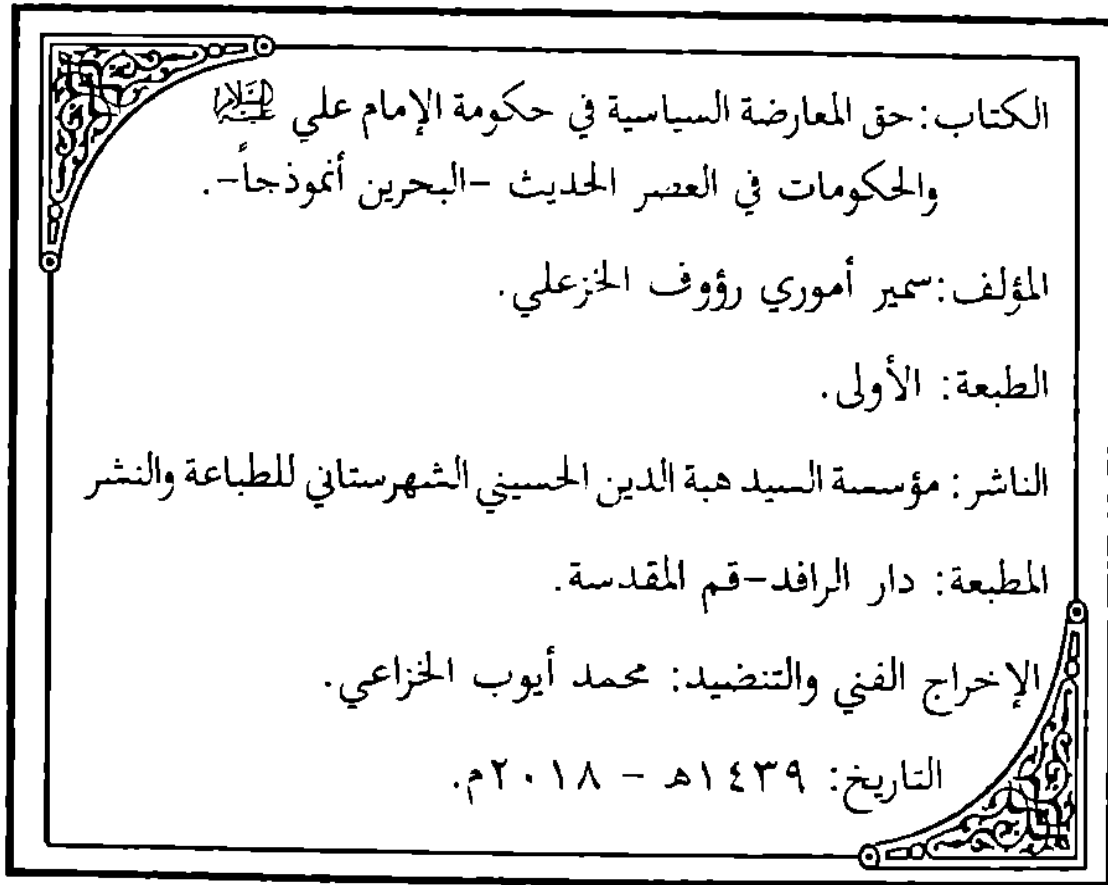 الكتاب: حق المعارضة السياسية في حكومة الإمام علي عليه السلام
والحكومات في العصر الحديث -البحرين أنموذجاً-.
المؤلف: سمير أموري رؤوف الخزعلي.
الطبعة: الأولى.
الناشر: مؤسسة السيد هبة الدين الحسيني الشهرستاني للطباعة والنشر
المطبعة: دار الرافد-قم المقدسة.
الإخراج الفني والتنضيد: محمد أيوب الخزاعي.
التاريخ: ١٤٣٩هـ - ٢٠١٨م.